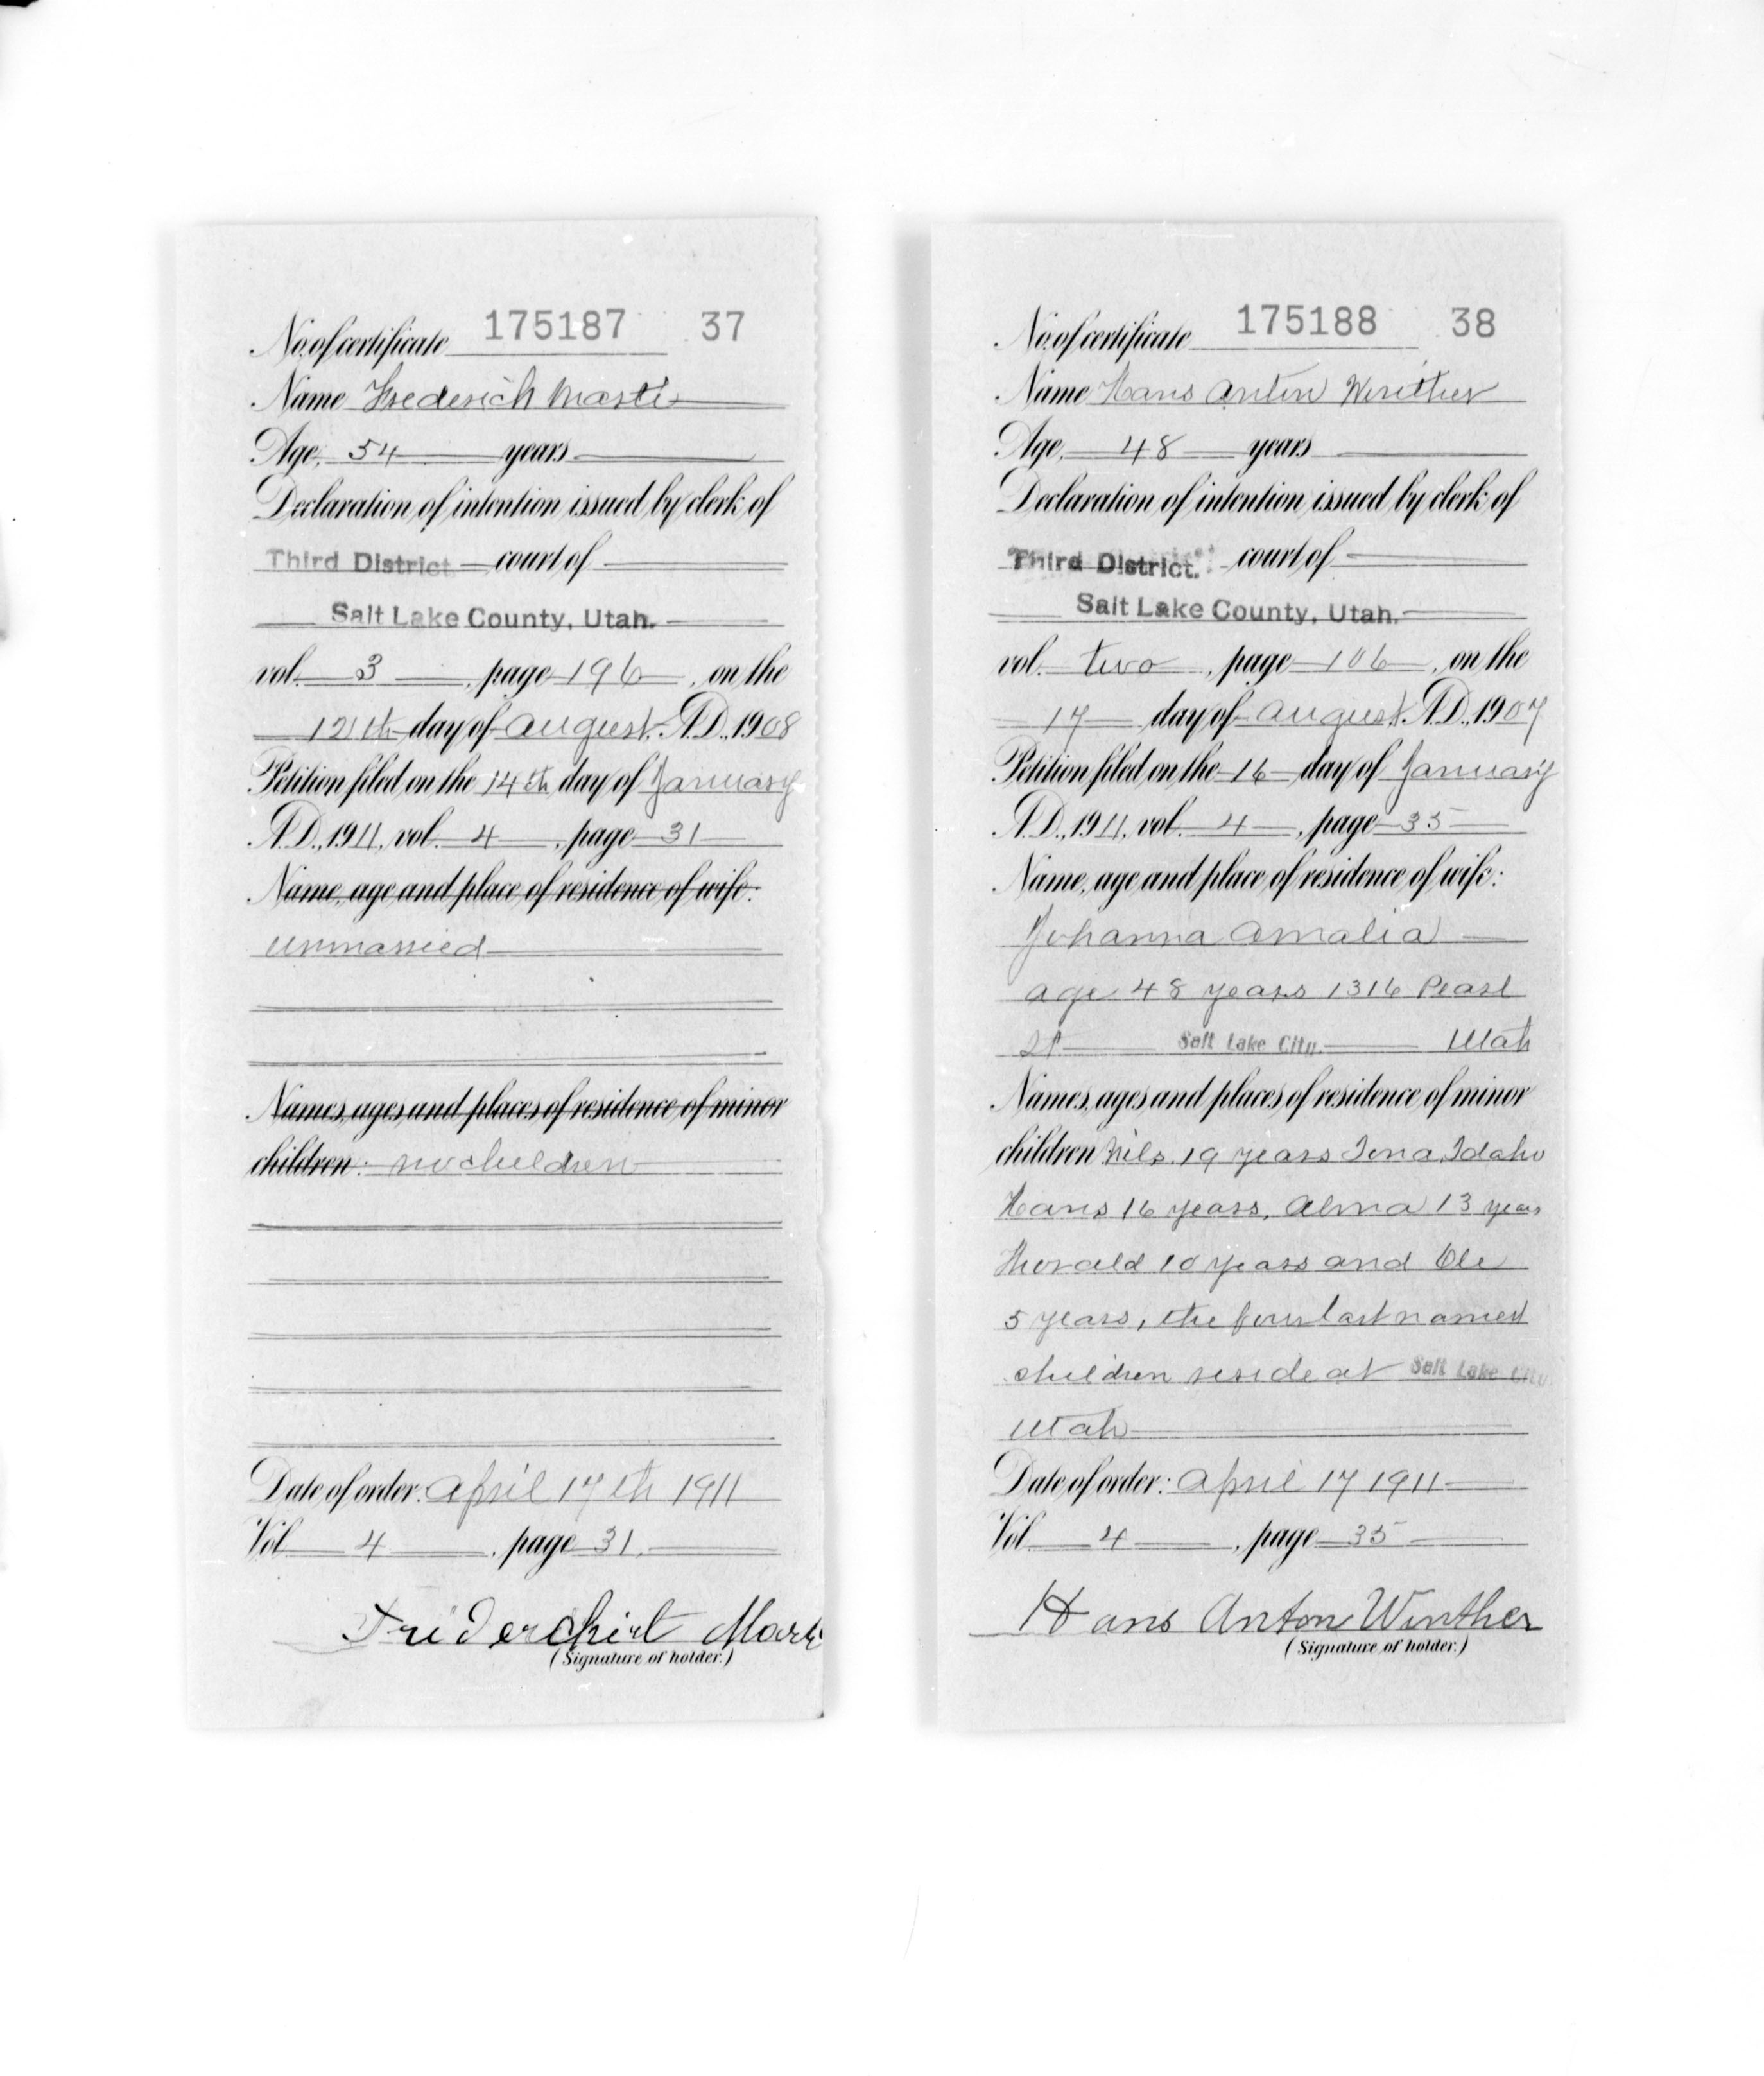 No. of certificate 175187 37
Name Frederich Marti
Age, 54 years
Declaration of intention issued by clerk of
Third District court of
Salt Lake County, Utah.
vol. 3, page 196, on the
12th day of August A.D., 1908
Petition filed on the 14th day of January
A.D., 1911, vol. 4, page 31
Name, age and place of residence of wife:
unmarried
Names, ages and places of residence of minor
children: no children
Date of order: April 17th 1911
Vol. 4, page 31.
(Signature of holder.)
No. of certificate 175188 38
Name Hans Anton Winther
Age, 48 years
Declaration of intention issued by clerk of
Third District. court of
Salt Lake County, Utah.
vol. two, page 106, on the
17 day of August A.D., 1907
Petition filed on the 16 day of January
A.D., 1911, vol. 4, page 35
Name, age and place of residence of wife:
Johanna Amalia
age 48 years 1316 Pearl
St Salt Lake City. Utah
Names, ages and places of residence of minor
children Nils. 19 years Iona, Idaho
Hans 16 years, Alma 13 years
Thorald 10 years and Ole
5 years, the four last named
children reside at Salt Lake City
Utah
Date of order: April 17 1911
Vol. 4, page 35
Hans Anton Winther
(Signature of holder.)